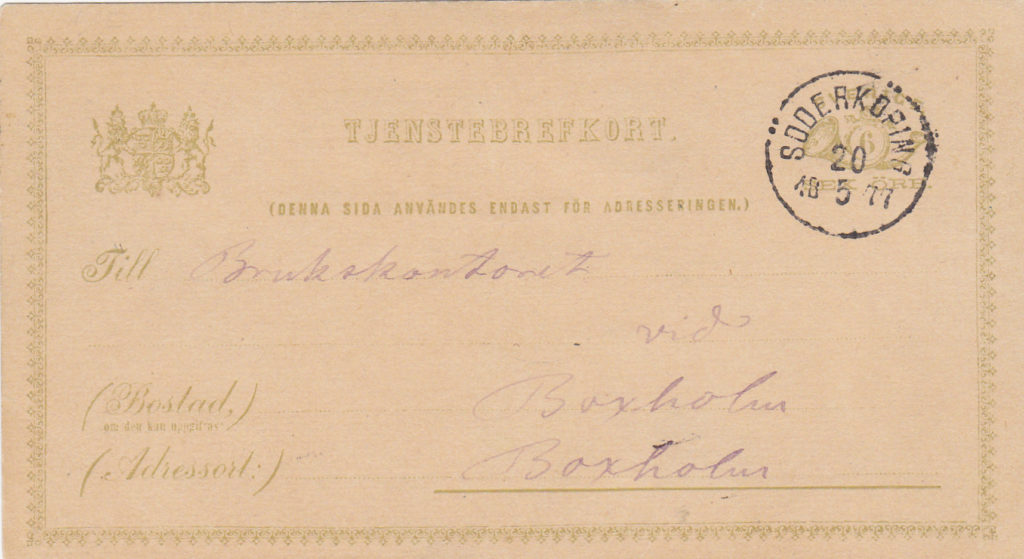 TJENSTEBREFKORT.
SÖDERKÖPING
20
5 77
SEX ÖRE.
(DENNA SIDA ANVÄNDES ENDAST FÖR ADRESSERINGEN.)
Till Brukskontoret
vid
(Bostad,) Boxholm
om den kan uppgifvas
(Adressort:) Boxholm